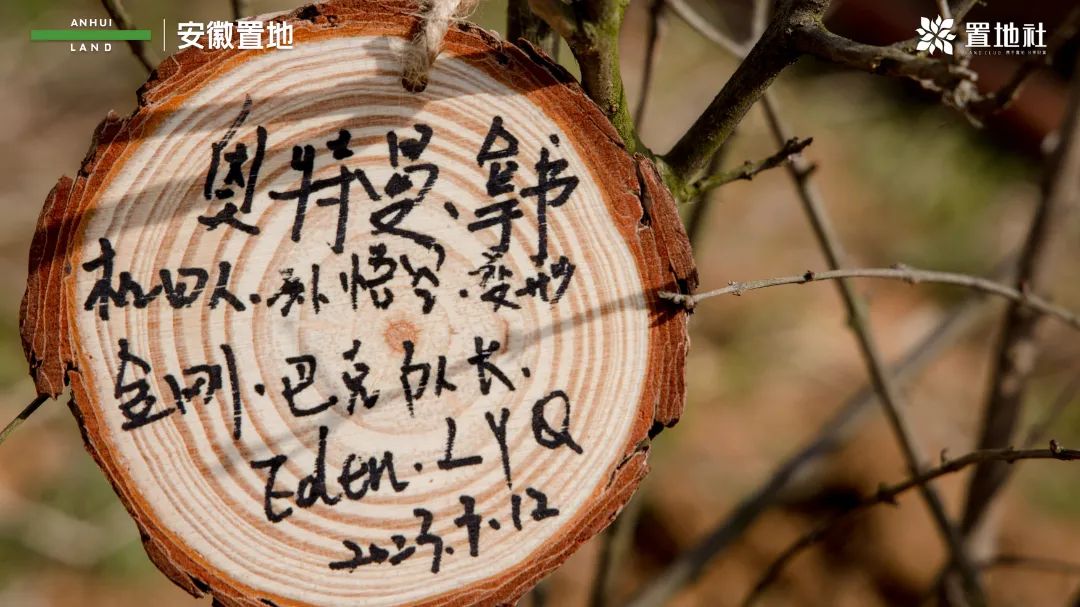 ANHUI
LAND
安徽置地
置地社
奥特曼.拿书
机四人.孙悟空.变形
金刚.巴克队长.
Eden.LYQ
2023.3.12